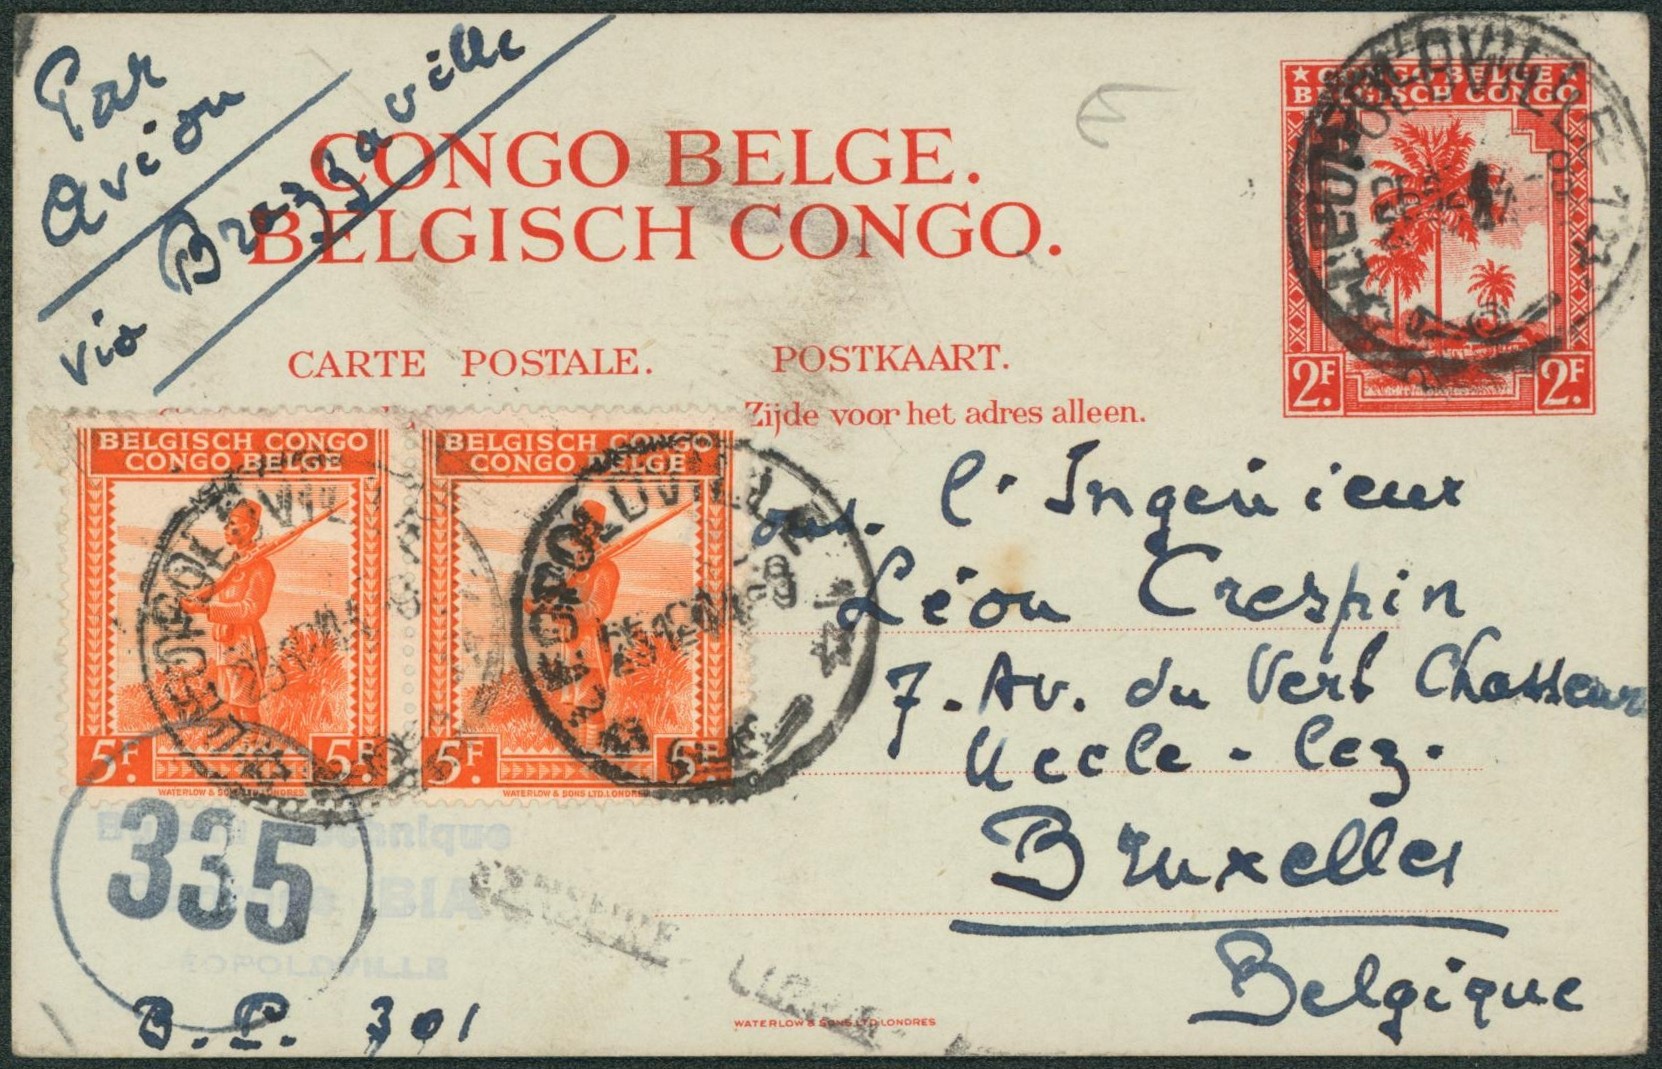 Par
Avion
via Brazzaville
CONGO BELGE.
BELGISCH CONGO.
CARTE POSTALE. POSTKAART.
Zijde voor het adres alleen.
★ CONGO BELGE ★
BELGISCH CONGO
2F. 2F.
LEOPOLDVILLE 1
BELGISCH CONGO
CONGO BELGE
5F. 5F.
WATERLOW & SONS LTD. LONDRES.
BELGISCH CONGO
CONGO BELGE
5F. 5F.
WATERLOW & SONS LTD. LONDRES.
LEOPOLDVILLE
LEOPOLDVILLE 1
l'Ingénieur
Léon Crespin
7. Av. du Vert Chasseur
Uccle - lez.
Bruxelles
Belgique
335
BIA
LEOPOLDVILLE
CENSURE
B. P. 301
WATERLOW & SONS LTD. LONDRES